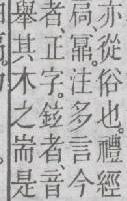 亦從俗也。禮經
扃、鼏。注多言今
者、正字。鉉者、音
舉其木之耑是